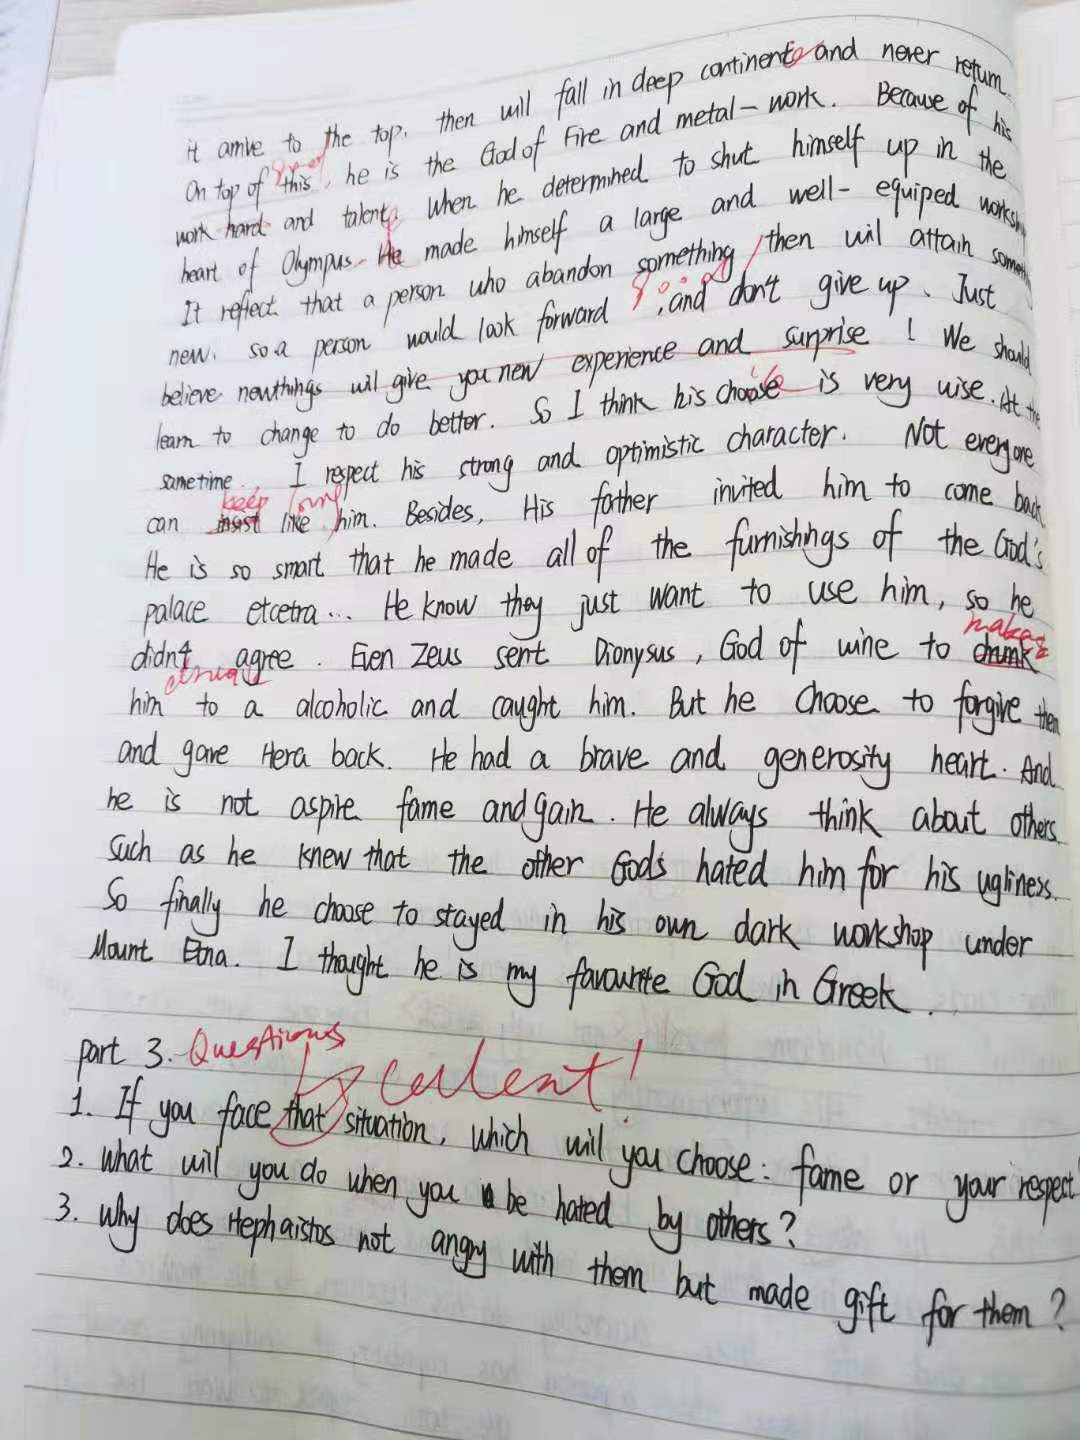 it arrive to the top. then will fall in deep continents and never return.
On top of this, he is the God of Fire and metal-work. Because of his
work hard and talent. When he determined to shut himself up in the
heart of Olympus. He made himself a large and well-equiped worksh
It reflect that a person who abandon something, then will attain someth
new. so a person would look forward going, and don't give up. Just
believe newthings will give you new experience and surprise! We should
learn to change to do better. So I think his choose is very wise. At the
sametime. I respect his strong and optimistic character. Not everyone
keep long
can insist like him. Besides, His father invited him to come back
He is so smart that he made all of the furnishings of the God's
palace etcetra... He know they just want to use him, so he
makes
didn't agree. Even Zeus sent Dionysus, God of wine to drunk
him to a alcoholic and caught him. But he choose to forgive them
and gave Hera back. He had a brave and generosity heart. And
he is not aspire fame and gain. He always think about others.
such as he knew that the other Gods hated him for his ugliness.
So finally he choose to stayed in his own dark workshop under
Mount Etna. I thought he is my favourite God in Greek.
part 3. Questions
Excellent!
1. If you face that situation, which will you choose: fame or your respect
2. What will you do when you be hated by others?
3. Why does Hephaistos not angry with them but made gift for them?